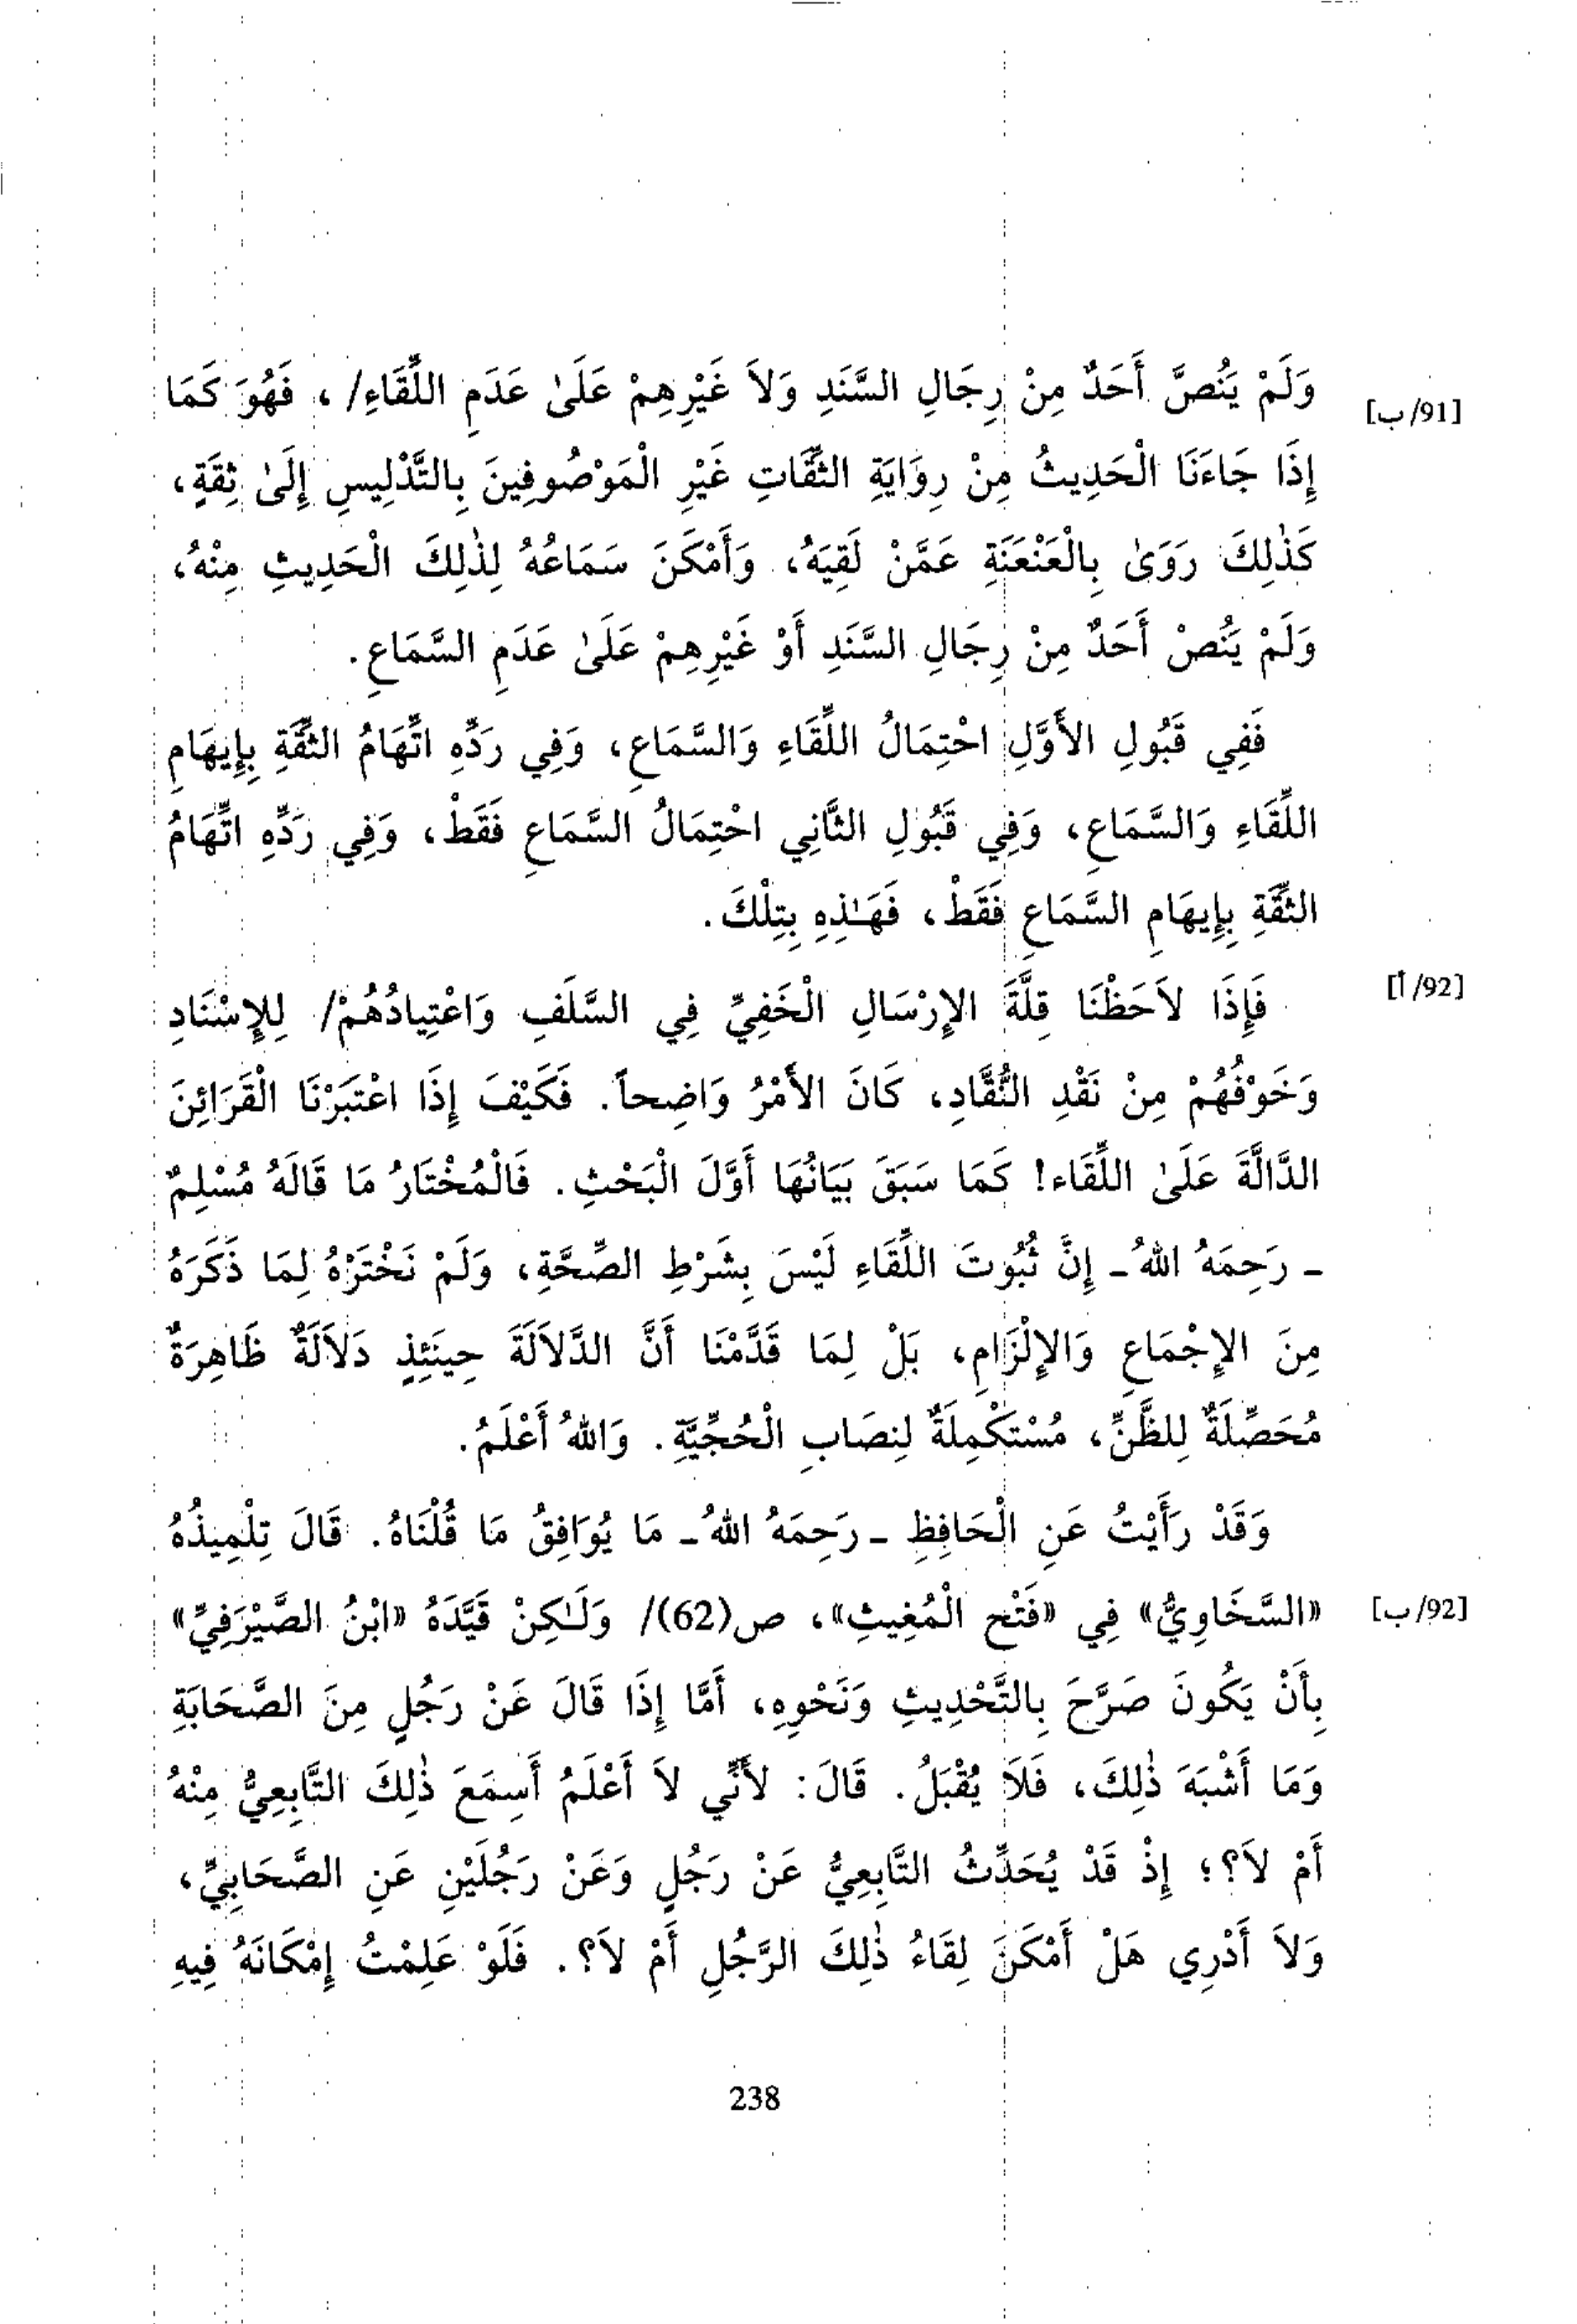 وَلَمْ يَنُصَّ أَحَدٌ مِنْ رِجَالِ السَّنَدِ وَلاَ غَيْرِهِمْ عَلَىٰ عَدَمِ اللِّقَاءِ/ ، فَهُوَ كَمَا [91/ب]
إِذَا جَاءَنَا الْحَدِيثُ مِنْ رِوَايَةِ الثِّقَاتِ غَيْرِ الْمَوْصُوفِينَ بِالتَّدْلِيسِ إِلَىٰ ثِقَةٍ،
كَذٰلِكَ رَوَىٰ بِالْعَنْعَنَةِ عَمَّنْ لَقِيَهُ، وَأَمْكَنَ سَمَاعُهُ لِذٰلِكَ الْحَدِيثِ مِنْهُ،
وَلَمْ يَنُصْ أَحَدٌ مِنْ رِجَالِ السَّنَدِ أَوْ غَيْرِهِمْ عَلَىٰ عَدَمِ السَّمَاعِ.
فَفِي قَبُولِ الأَوَّلِ احْتِمَالُ اللِّقَاءِ وَالسَّمَاعِ، وَفِي رَدِّهِ اتِّهَامُ الثِّقَةِ بِإِيهَامِ
اللِّقَاءِ وَالسَّمَاعِ، وَفِي قَبُولِ الثَّانِي احْتِمَالُ السَّمَاعِ فَقَطْ، وَفِي رَدِّهِ اتِّهَامُ
الثِّقَةِ بِإِيهَامِ السَّمَاعِ فَقَطْ، فَهَـٰذِهِ بِتِلْكَ.
فَإِذَا لاَحَظْنَا قِلَّةَ الإِرْسَالِ الْخَفِيِّ فِي السَّلَفِ وَاعْتِيادُهُمْ/ لِلإِسْنَادِ [92/أ]
وَخَوْفُهُمْ مِنْ نَقْدِ النُّقَّادِ، كَانَ الأَمْرُ وَاضِحاً. فَكَيْفَ إِذَا اعْتَبَرْنَا الْقَرَائِنَ
الدَّالَّةَ عَلَىٰ اللِّقَاء! كَمَا سَبَقَ بَيَانُهَا أَوَّلَ الْبَحْثِ. فَالْمُخْتَارُ مَا قَالَهُ مُسْلِمٌ
ـ رَحِمَهُ اللهُ ـ إِنَّ ثُبُوتَ اللِّقَاءِ لَيْسَ بِشَرْطِ الصِّحَّةِ، وَلَمْ نَخْتَرْهُ لِمَا ذَكَرَهُ
مِنَ الإِجْمَاعِ وَالإِلْزَامِ، بَلْ لِمَا قَدَّمْنَا أَنَّ الدَّلاَلَةَ حِينَئِذٍ دَلاَلَةٌ ظَاهِرَةٌ
مُحَصِّلَةٌ لِلظَّنِّ، مُسْتَكْمِلَةٌ لِنِصَابِ الْحُجِّيَّةِ. وَاللهُ أَعْلَمُ.
وَقَدْ رَأَيْتُ عَنِ الْحَافِظِ ـ رَحِمَهُ اللهُ ـ مَا يُوَافِقُ مَا قُلْنَاهُ. قَالَ تِلْمِيذُهُ
«السَّخَاوِيُّ» فِي «فَتْحِ الْمُغِيثِ»، ص(62)/ وَلَـٰكِنْ قَيَّدَهُ «ابْنُ الصَّيْرَفِيِّ» [92/ب]
بِأَنْ يَكُونَ صَرَّحَ بِالتَّحْدِيثِ وَنَحْوِهِ، أَمَّا إِذَا قَالَ عَنْ رَجُلٍ مِنَ الصَّحَابَةِ
وَمَا أَشْبَهَ ذٰلِكَ، فَلاَ يُقْبَلُ. قَالَ: لأَنِّي لاَ أَعْلَمُ أَسِمَعَ ذٰلِكَ التَّابِعِيُّ مِنْهُ
أَمْ لاَ؟؛ إِذْ قَدْ يُحَدِّثُ التَّابِعِيُّ عَنْ رَجُلٍ وَعَنْ رَجُلَيْنِ عَنِ الصَّحَابِيِّ،
وَلاَ أَدْرِي هَلْ أَمْكَنَ لِقَاءُ ذٰلِكَ الرَّجُلِ أَمْ لاَ؟. فَلَوْ عَلِمْتُ إِمْكَانَهُ فِيهِ
238